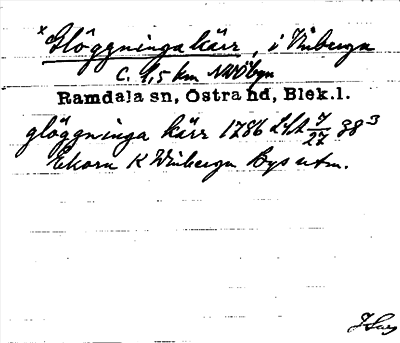 × Glöggninga kärr, i Vinberga
c. 1,5 km NNV byn
Ramdala sn, Östra hd, Blek.l.
glöggninga kärr 1786 LSA 7/27 38³
Ekorn K Winberga Bys utm.